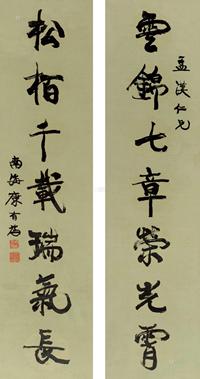 孟漢仁兄
雲錦七章榮光霄
松栢千載瑞氣長
南海康有為